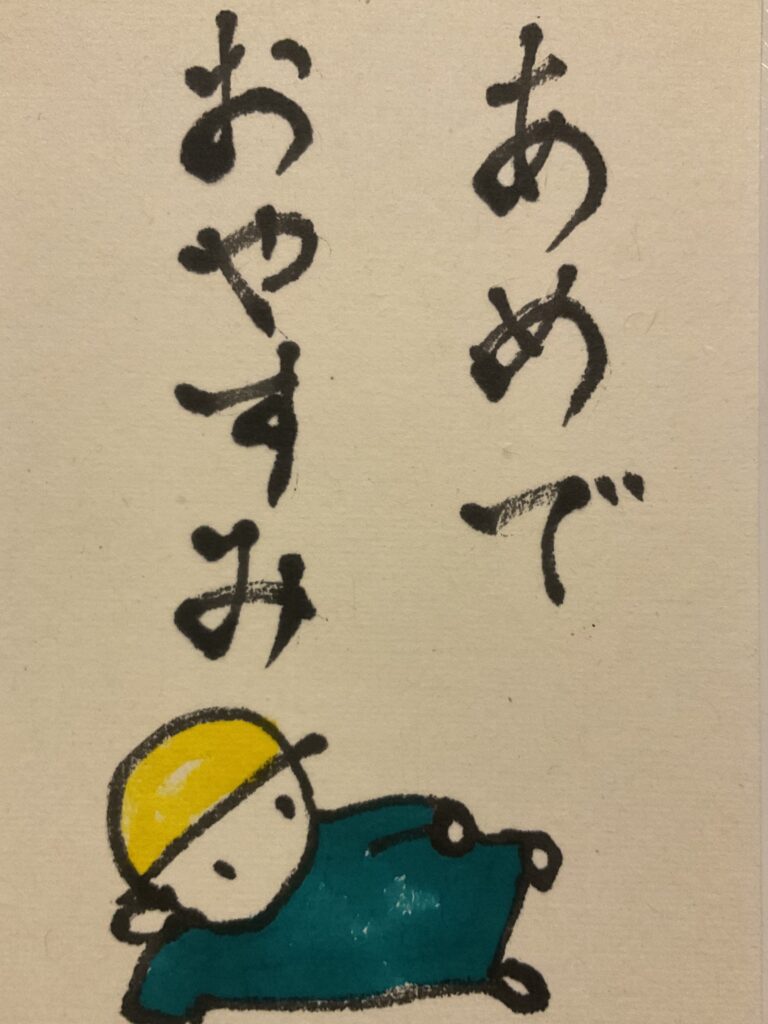 あめで
おやすみ